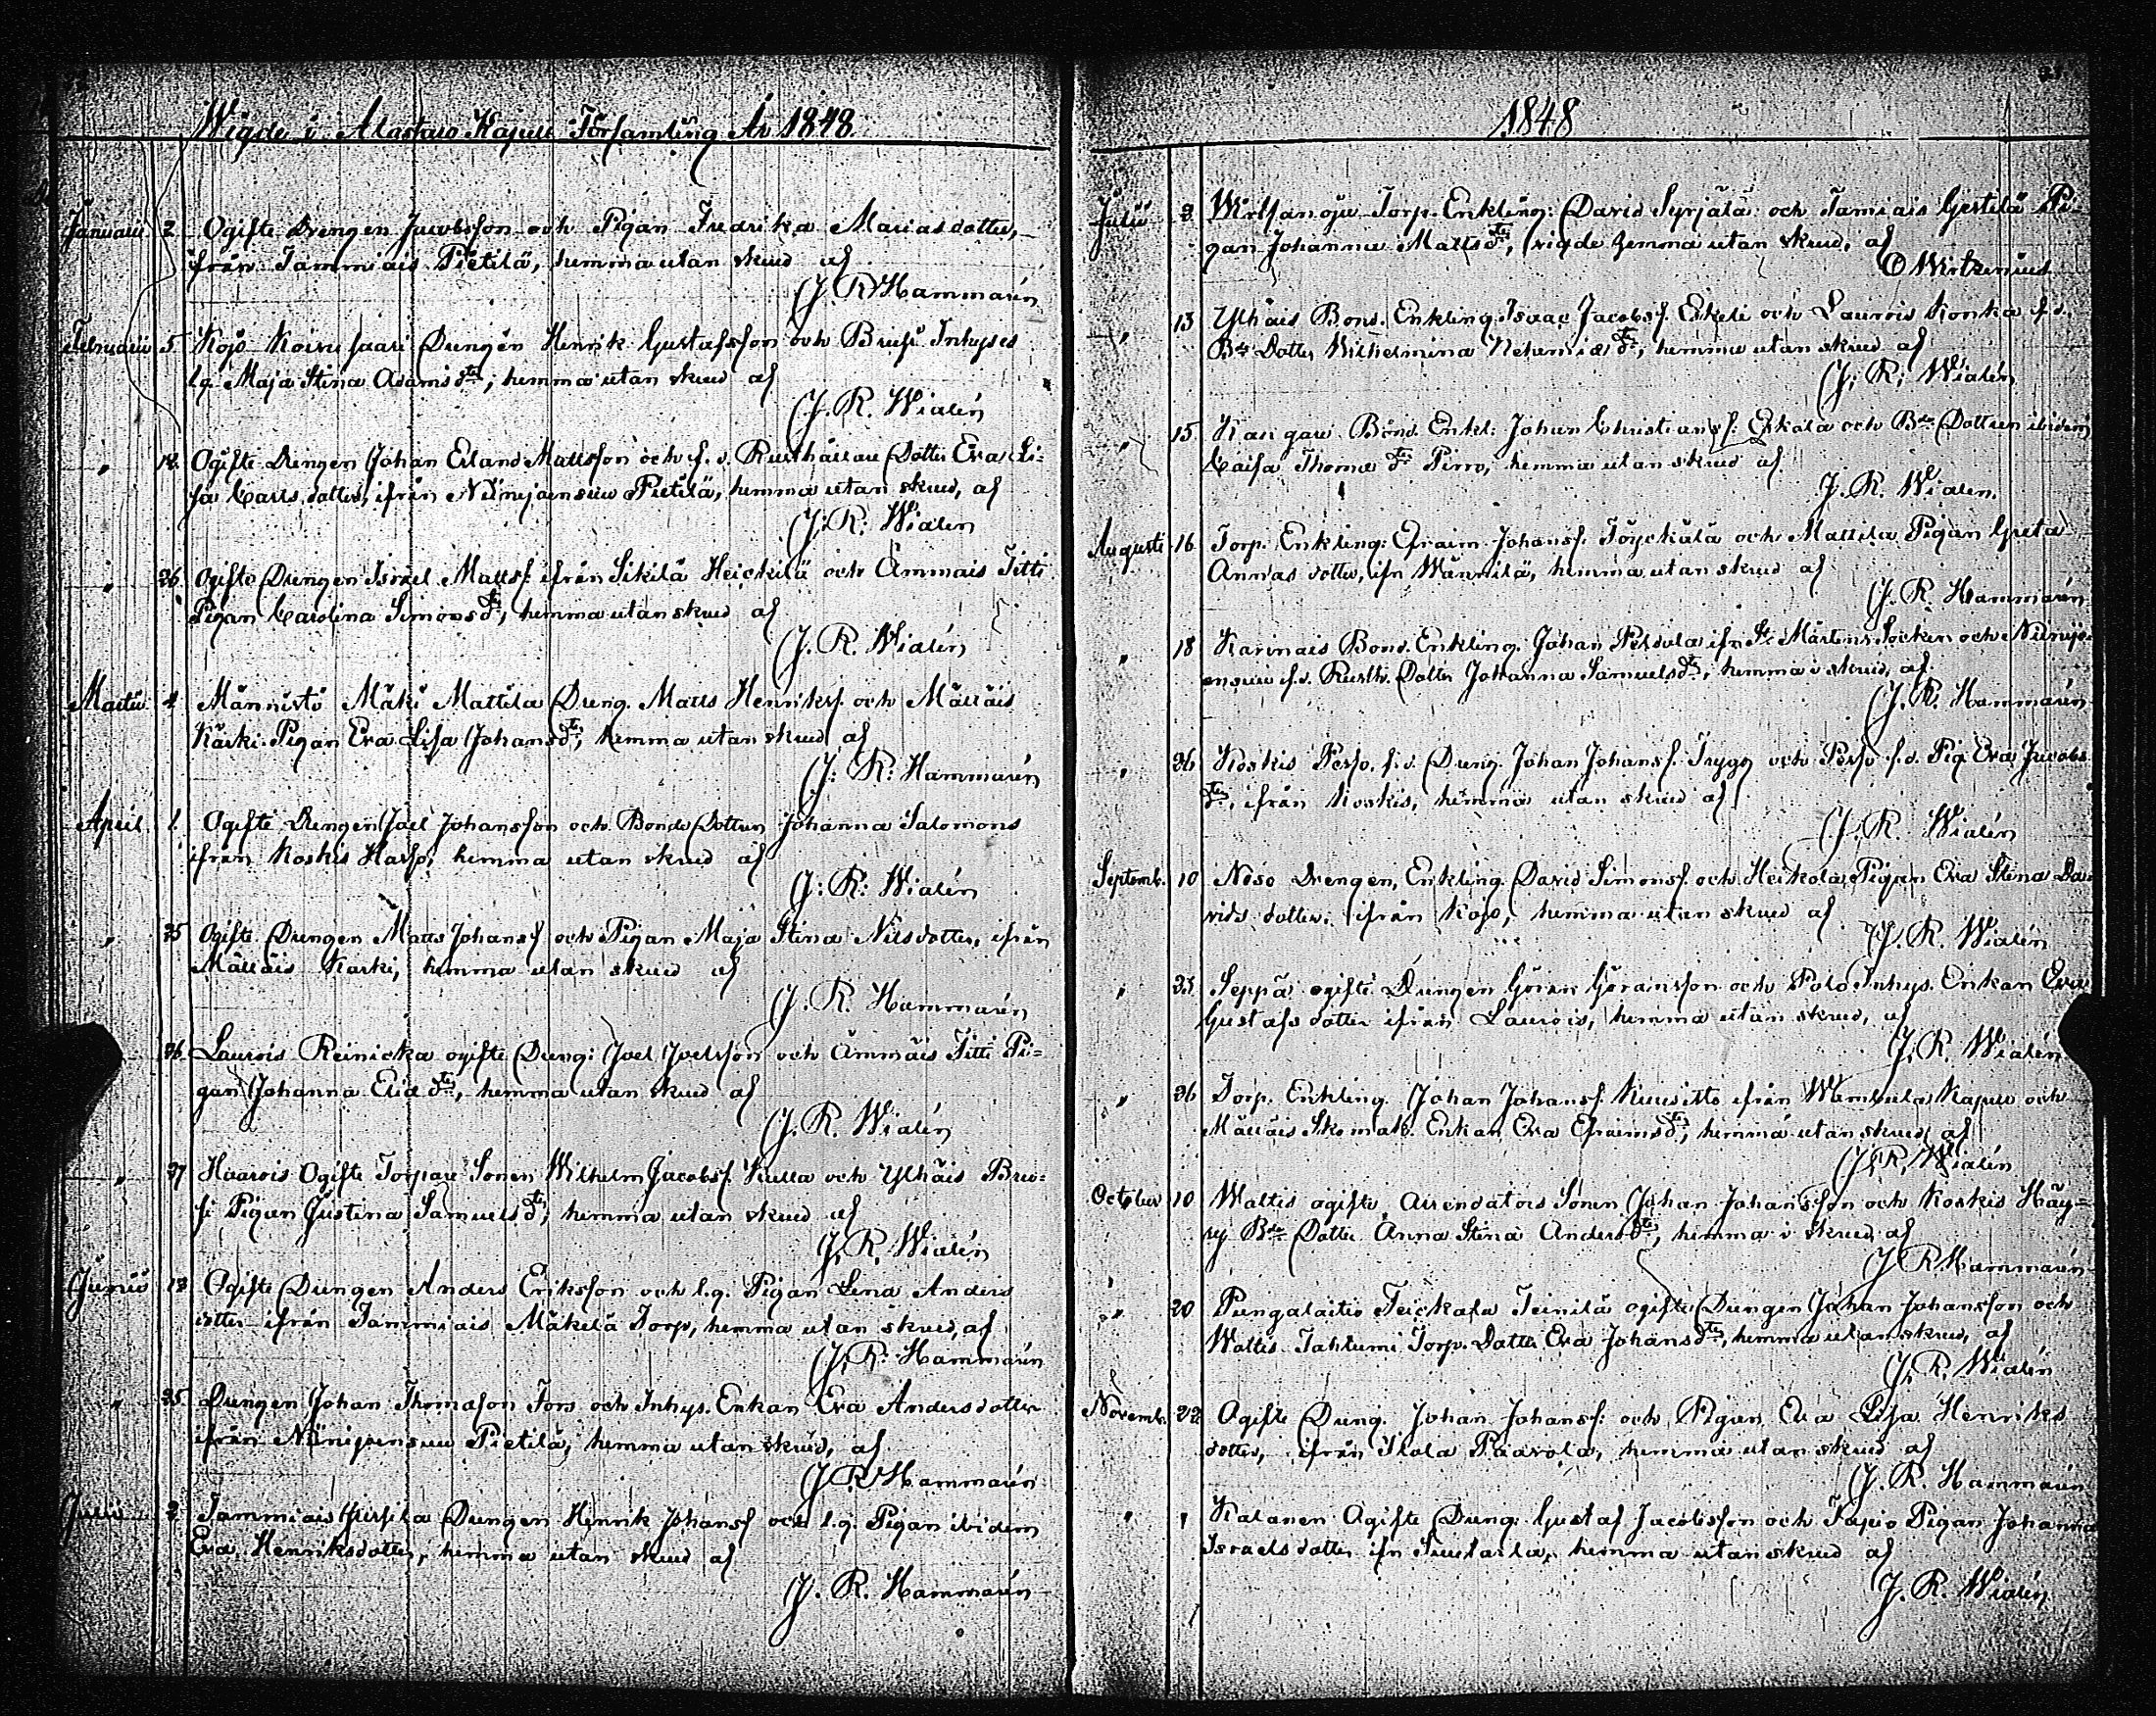 Wigde i Alastaro Kapell Församling År 1848
Januarii 2 Ogifte Drengen Jacobsson och Pigan Fredrika Mariasdotter,
ifrån Tammiais Pietilä, hemma utan skrud af
J. R. Hammarén
Februarii 5 Köjö Koivusaari Drengen Henrik Gustafsson och Inhyses
l.q. Maja Stina Adams dtr, hemma utan skrud af
J. R. Wialén
" 12. Ogifte Drengen Johan Erland Mattsson och f. d. Rusthållare Dotter Eva Li-
sa Carls dotter, ifrån Niinijoensuu Pietilä, hemma utan skrud, af
J. R. Wialén
" 26 Ogifte Drengen Israel Mattsf. ifrån Sikilä Heickilä och Ammais Titti
Pigan Carolina Simons dtr, hemma utan skrud af
J. R. Wialén
Martii 4 Männistö Mäki Mattila Dreng. Matts Henriksf. och Mälläis
Kärki Pigan Eva Lisa Johans dtr, hemma utan skrud af
J. R. Hammarén
April 1. Ogifte Drengen Joel Johansson och Bonde Dottren Johanna Salomons
ifrån Koskis Harjo, hemma utan skrud af
J. R. Wialén
" 25 Ogifte Drengen Matts Johansf. och Pigan Maja Stina Nilsdotter, ifrån
Mälläis Kärki, hemma utan skrud af
J. R. Hammarén
26. Laurois Reinicka ogifte Dreng: Joel Joelsson och Ämmäis Titti Pi-
gan Johanna Elia dtr, hemma utan skrud af
J. R. Wialén
" 27 Haarois Ogifte Torpare Sonen Wilhelm Jacobsf. Kulla och Ylhäis
Pigan Justina Samuels dtr, hemma utan skrud af
J. R. Wialén
Junii 12 Ogifte Drengen Anders Eriksson och l.q. Pigan Lena Anders
dotter ifrån Tammiais Mäkelä Torp, hemma utan skrud, af
J. R. Hammarén
" 25. Drengen Johan Thomasson Fors och Inhys. Enkan Eva Andersdotter
ifrån Niinijoensuu Pietilä, hemma utan skrud, af
J. R. Hammarén
Julii 2 Tammiais Drengen Henrik Johansf och l.q. Pigan ibidem
Eva Henriksdotter, hemma utan skrud af
J. R. Hammarén
1848
Julii Torp. Enkling: David Syrjälä och Tamiais Gertilä Pi-
gan Johanna Matts dtr, vigde hemma utan skrud, af
O Wirtzenius
" 13 Ylhäis Bond. Enkling Isaac Jacobsf. Eskeli och Laurois Konka f. d.
Bde Dotter Wilhelmina Nehemiæ dtr, hemma utan skrud af
J. R. Wialén
" 15 Bond. Enkl: Johan Christiansf: Eskola och Bde Dottren ibidem
Caisa Thomæ dtr Pirro, hemma utan skrud af
J. R. Wialen.
Augusti 16 Torp. Enkling: Efraim Johansf. Töyckälä och Mattila Pigan Greta
Annas dotter, ifn Männilä, hemma utan skrud af
J. R. Hammarén
" 18 Karinais Bond. Enkling. Johan Peldola ifn St Mårtens Socken och Niinijo-
ensuu f. d. Rusth. Dotter Johanna Samuels dtr, hemma i skrud, af
J. R. Hammarén
" 26 Koskis f. d. Dreng. Johan Johansf. Trygg och f. d. Pig. Eva Jacobs
dtr, ifrån Koskis, hemma utan skrud af
J. R. Wialén
Septemb. 10 Noso Drengen, Enkling David Simonsf. och Heikola Pigan Eva Stina Da-
vids dotter, ifrån Köjö, hemma utan skrud af
J. R. Wialén
" 23 Seppä ogifte Drengen Göran Göransson och Polo Inhys. Enkan Eva
Gustafs dotter ifrån Laurois, hemma utan skrud, af
J. R. Wialén
" 26 Torp. Enkling. Johan Johansf. Kuusisto ifrån Wambula Kapell och
Mälläis Skomak. Enkan Eva Efraims dtr, hemma utan skrud af
J. R. Wialén
October 10 Waltis ogifte, Arrendators Sonen Johan Johansson och Koskis Häy-
ry Bde Dotter Anna Stina Anders dtr, hemma i skrud af
J R Hammarén
" 20 Pungalaitio Teinilä ogifte Drengen Johan Johansson och
Waltis Tahlumi Torp. Dotter Eva Johans dtr, hemma utan skrud, af
J. R. Wialén
Novemb. 22 Ogifte Dreng. Johan Johansf: och Pigan Eva Lisa Henriks
dotter, ifrån Paavola, hemma utan skrud af
J. R. Hammarén
" " Kalanen Ogifte Dreng: Gustaf Jacobsson och Tapio Pigan Johanna
Israels dotter ifn hemma utan skrud af
J. R. Wialén